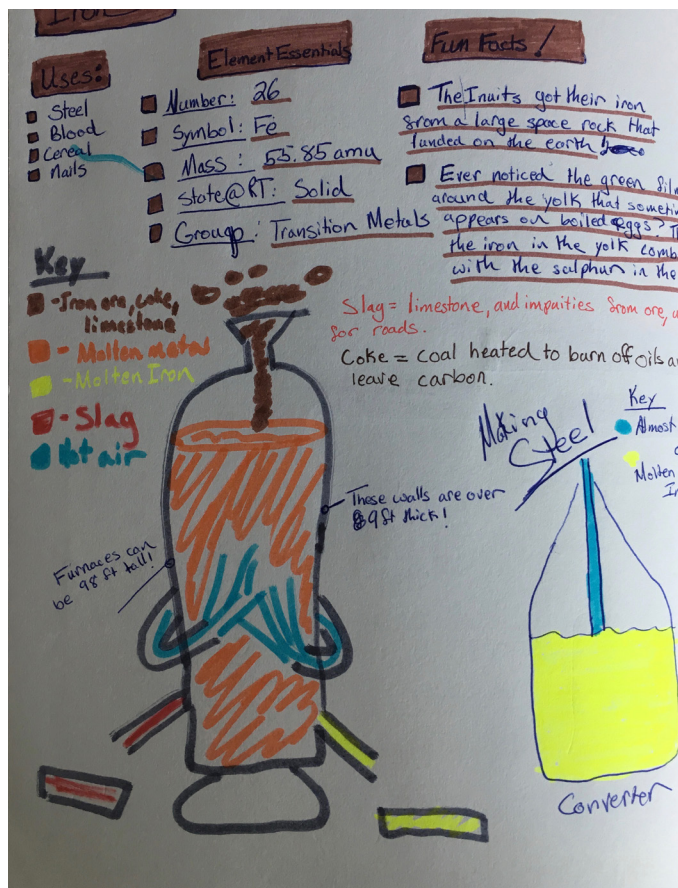 Iron
Uses:
Steel
Blood
Cereal
Nails
Element Essentials
Number: 26
Symbol: Fe
Mass: 55.85 amu
State@RT: Solid
Group: Transition Metals
Fun Facts!
The Inuits got their iron
from a large space rock that
landed on the earth!
Ever noticed the green
around the yolk that
appears on boiled eggs?
the iron in the yolk
with the sulphur in the
Key
-Iron ore, coke,
limestone
- Molten metal
- Molten Iron
- Slag
Hot air
Slag = limestone, and impuities from ore,
for roads.
Coke = coal heated to burn off oils
leave carbon.
These walls are over
9ft thick!
Furnaces can
be 98 ft tall!
Making
Steel
Key
Almost
Molten
Converter